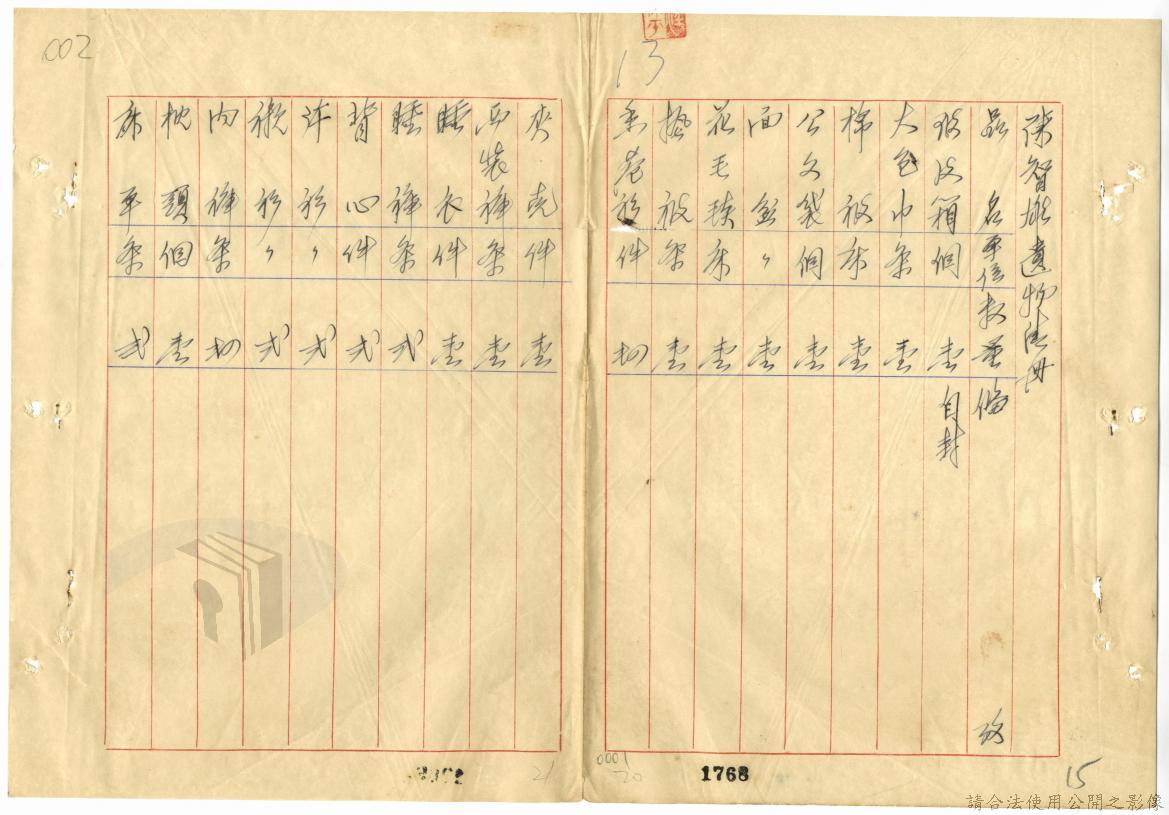 13
15
陳智雄遺物清冊
品名 單位 數量 備攷
玻皮箱 個 壹 自封
大包巾 条 壹
棉被 床 壹
公文袋 個 壹
面盆 〃 壹
花毛琰 床 壹
墊被 条 壹
香港衫 件
1768
0001
20
002
夾克 件 壹
西裝褲 条 壹
睡衣 件 壹
睡褲 条 弍
背心 件 弍
汗衫 〃 弍
襯衫 〃 弍
内褲 条
枕頭 個 壹
床單 条 弍
21
請合法使用公開之影像